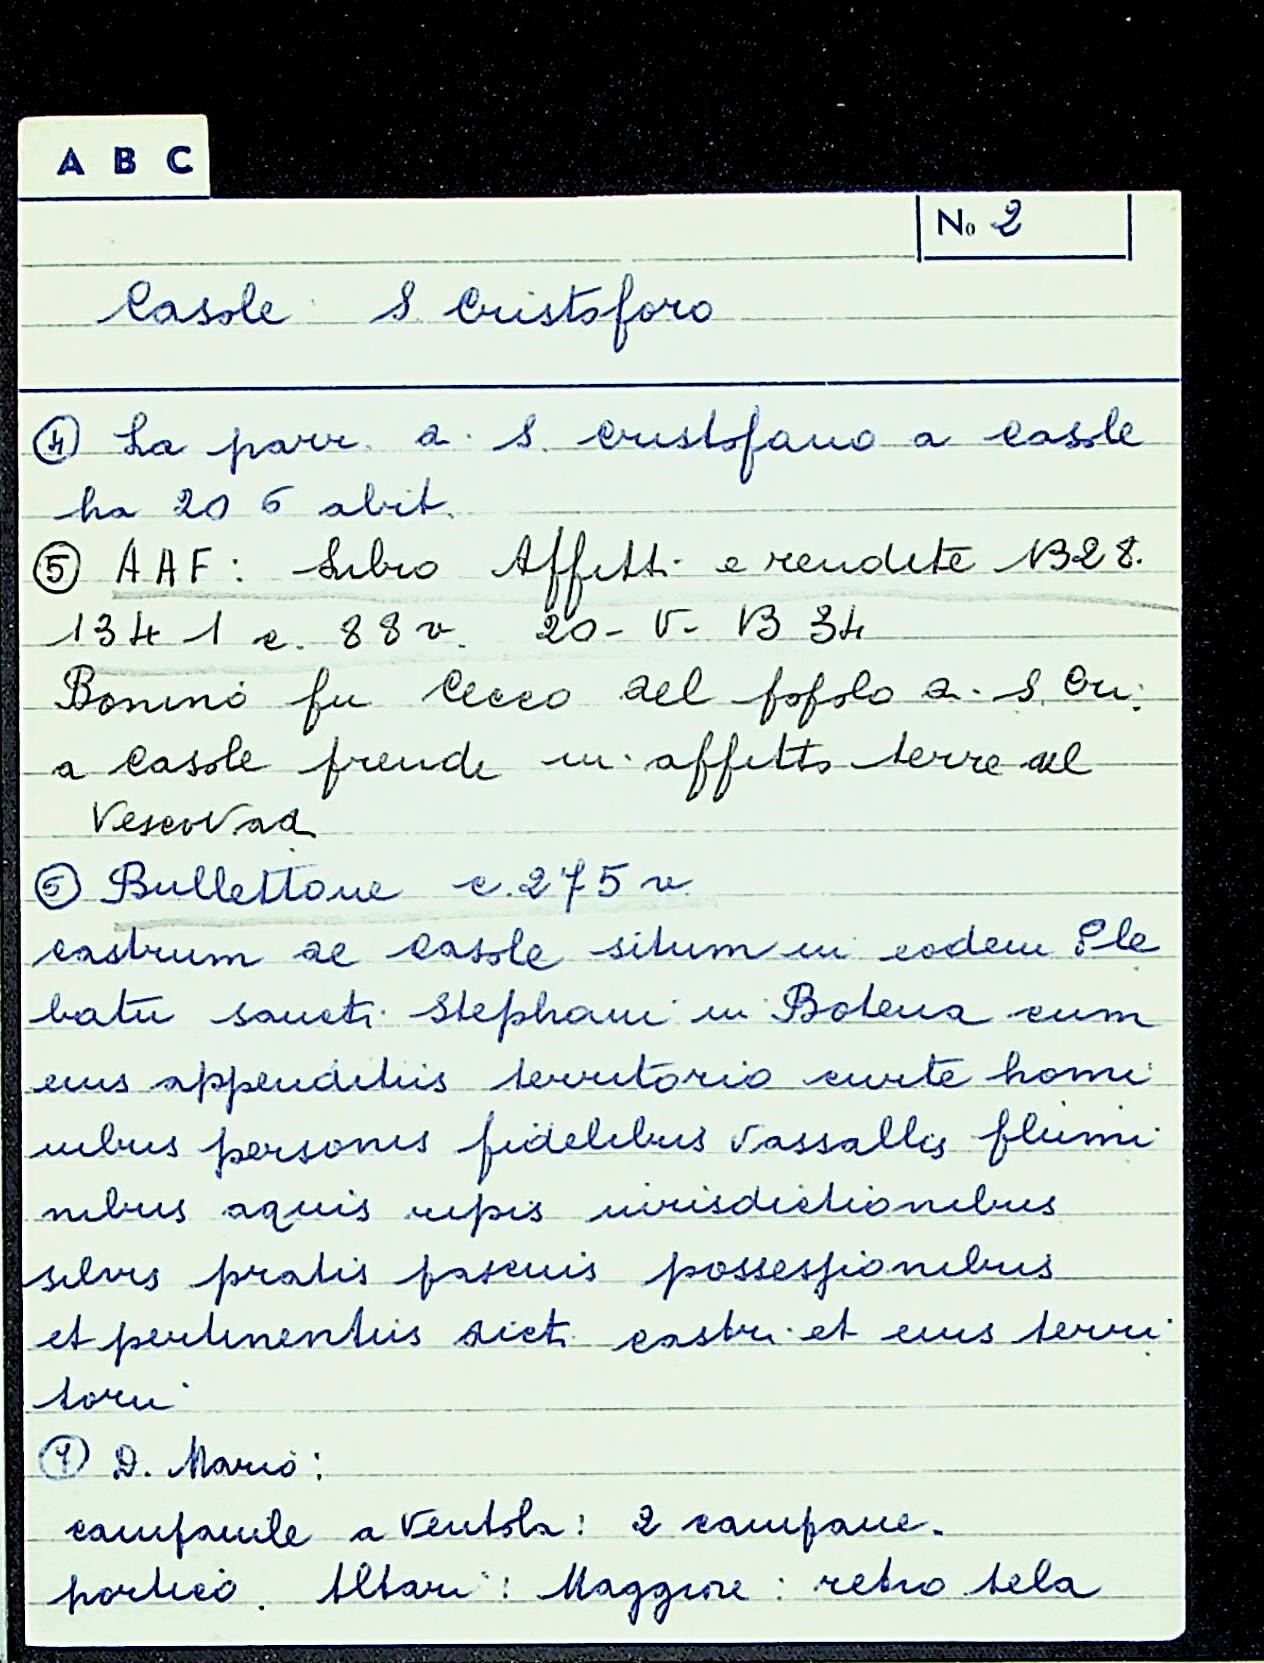 A B C
No 2
Casole S. Cristoforo
④ La parr. d. S. Cristofano a Casole
ha 206 abit.
⑤ AAF: Libro Affitti e rendite NB28.
1341 c. 88v. 20-V- B 34
Bonino fu Cecco del popolo d. S. Cri:
a Casole prende in affitto terre del
Vescovad
⑥ Bullettone c. 275v
castrum de Casole situm in eodem Ple
batu sancti Stephani in Botena cum
eius appenditiis territorio curte homi
nibus personis fidelibus vassallis flumi
nibus aquis ripis iurisdictionibus
silvis pratis pascuis possessionibus
et pertinentiis dicti castri et eius terri
torii
⑦ D. Mario:
campanile a ventola: 2 campane.
portico. Altari: Maggiore: retro tela